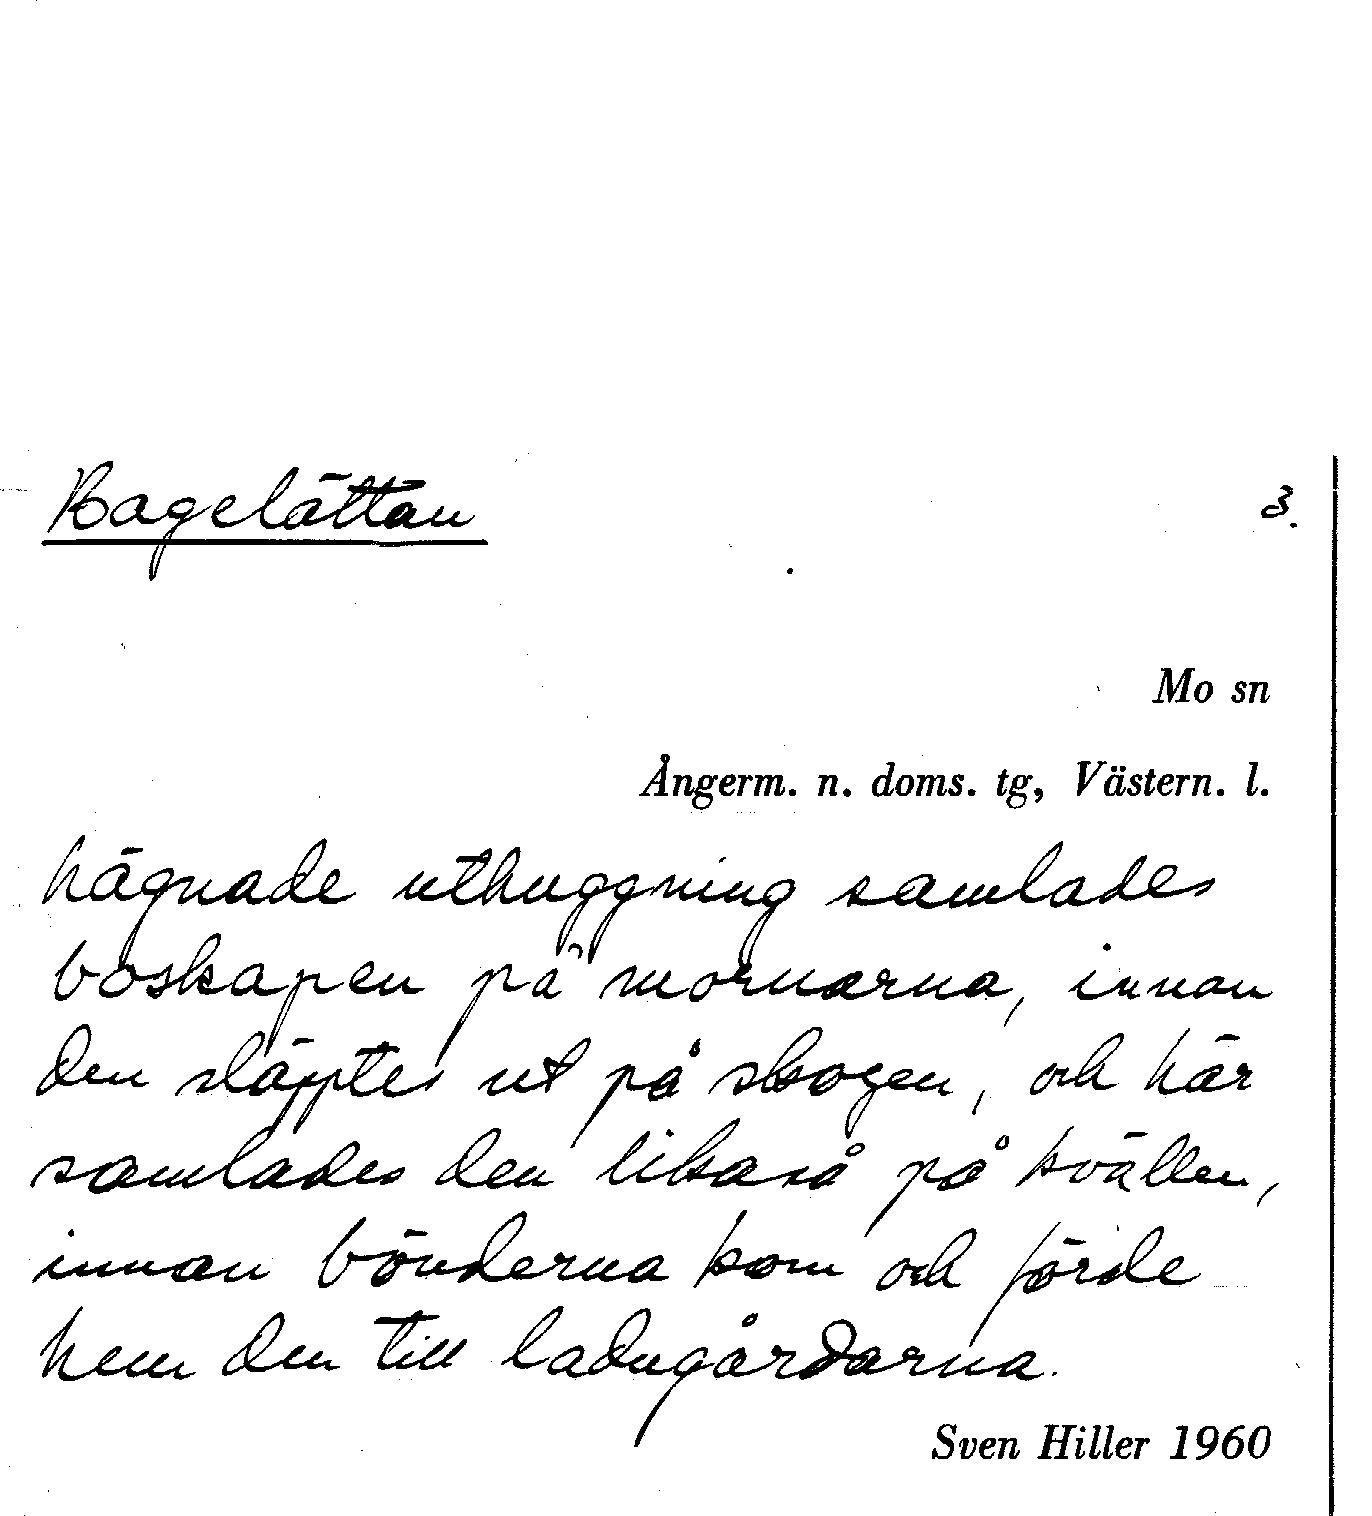 Bagelättan
3.
Mo sn
Ångerm. n. doms. tg, Västern. l.
hägnade uthuggning samlades
boskapen på mornarna, innan
den släpptes ut på skogen, och här
samlades den likaså på kvällen,
innan bönderna kom och förde
hem den till ladugårdarna.
Sven Hiller 1960